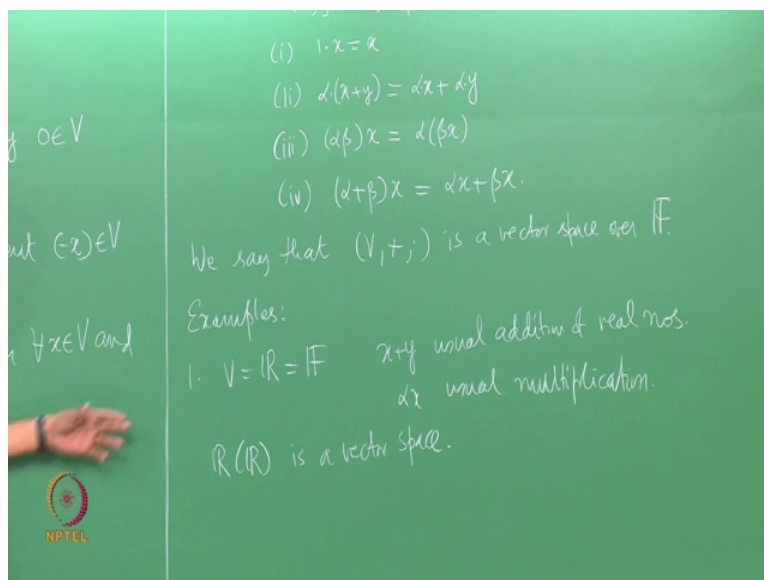 0∈V
(-x)∈V
∀x∈V and
(i) 1·x=x
(ii) α·(x+y) = α·x + α·y
(iii) (αβ)x = α(βx)
(iv) (α+β)x = αx+βx.
We say that (V,+,·) is a vector space over 𝔽.
Examples:
1. V=ℝ=𝔽 x+y usual addition of real nos.
αx usual multiplication.
ℝ(ℝ) is a vector space.
NPTEL